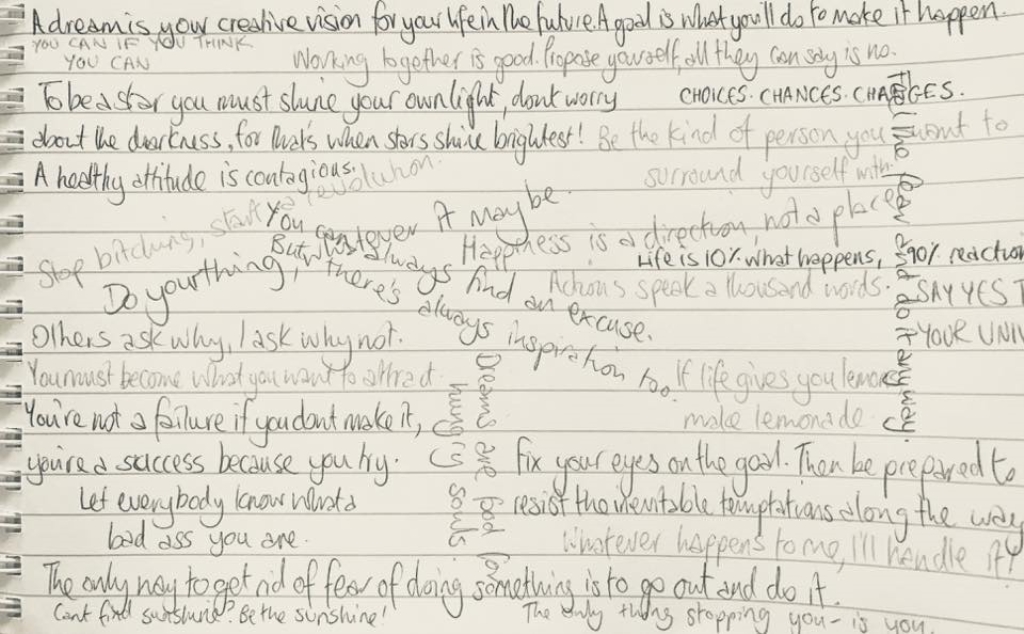 A dream is your creative vision for your life in the future. A goal is what you'll do to make it happen.
YOU CAN IF YOU THINK
YOU CAN
Working together is good. Propose yourself, all they can say is no.
To be a star you must shine your own light, dont worry
about the darkness, for that's when stars shine brightest!
CHOICES. CHANCES. CHANGES.
Be the kind of person you want to
surround yourself with.
A healthy attitude is contagious.
Stop bitching, start a revolution.
You can always find an excuse.
But there's always inspiration too.
Whatever it may be.
Do your thing,
Happiness is a direction, not a place
Life is 10% what happens, 90% reaction
Actions speak a thousand words.
SAY YES T
YOUR UNI
feel the fear and do it anyway.
Others ask why, I ask why not.
You must become what you want to attract.
If life gives you lemons
make lemonade.
You're not a failure if you dont make it,
you're a success because you try.
Dreams are food for
hungry souls.
Fix your eyes on the goal. Then be prepared to
resist the inevitable temptations along the way
Let everybody know what a
bad ass you are.
Whatever happens to me, I'll handle it!
The only way to get rid of fear of doing something is to go out and do it.
Cant find sunshine? Be the sunshine!
The only thing stopping you - is you.